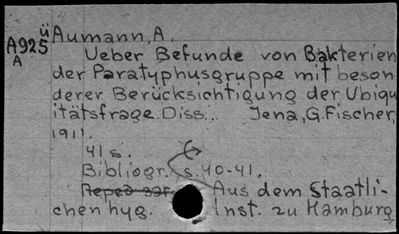 ü Aumann, A.
A925
A
Ueber Befunde von Bakterien
der Paratyphusgruppe mit beson
derer Berücksichtigung der Ubiqu
itätsfrage. Diss. Jena, G. Fischer,
1911.
41 s.
Bibliogr. s. 40-41.
Aus dem Staatli-
chen hyg. Inst. zu Hamburg